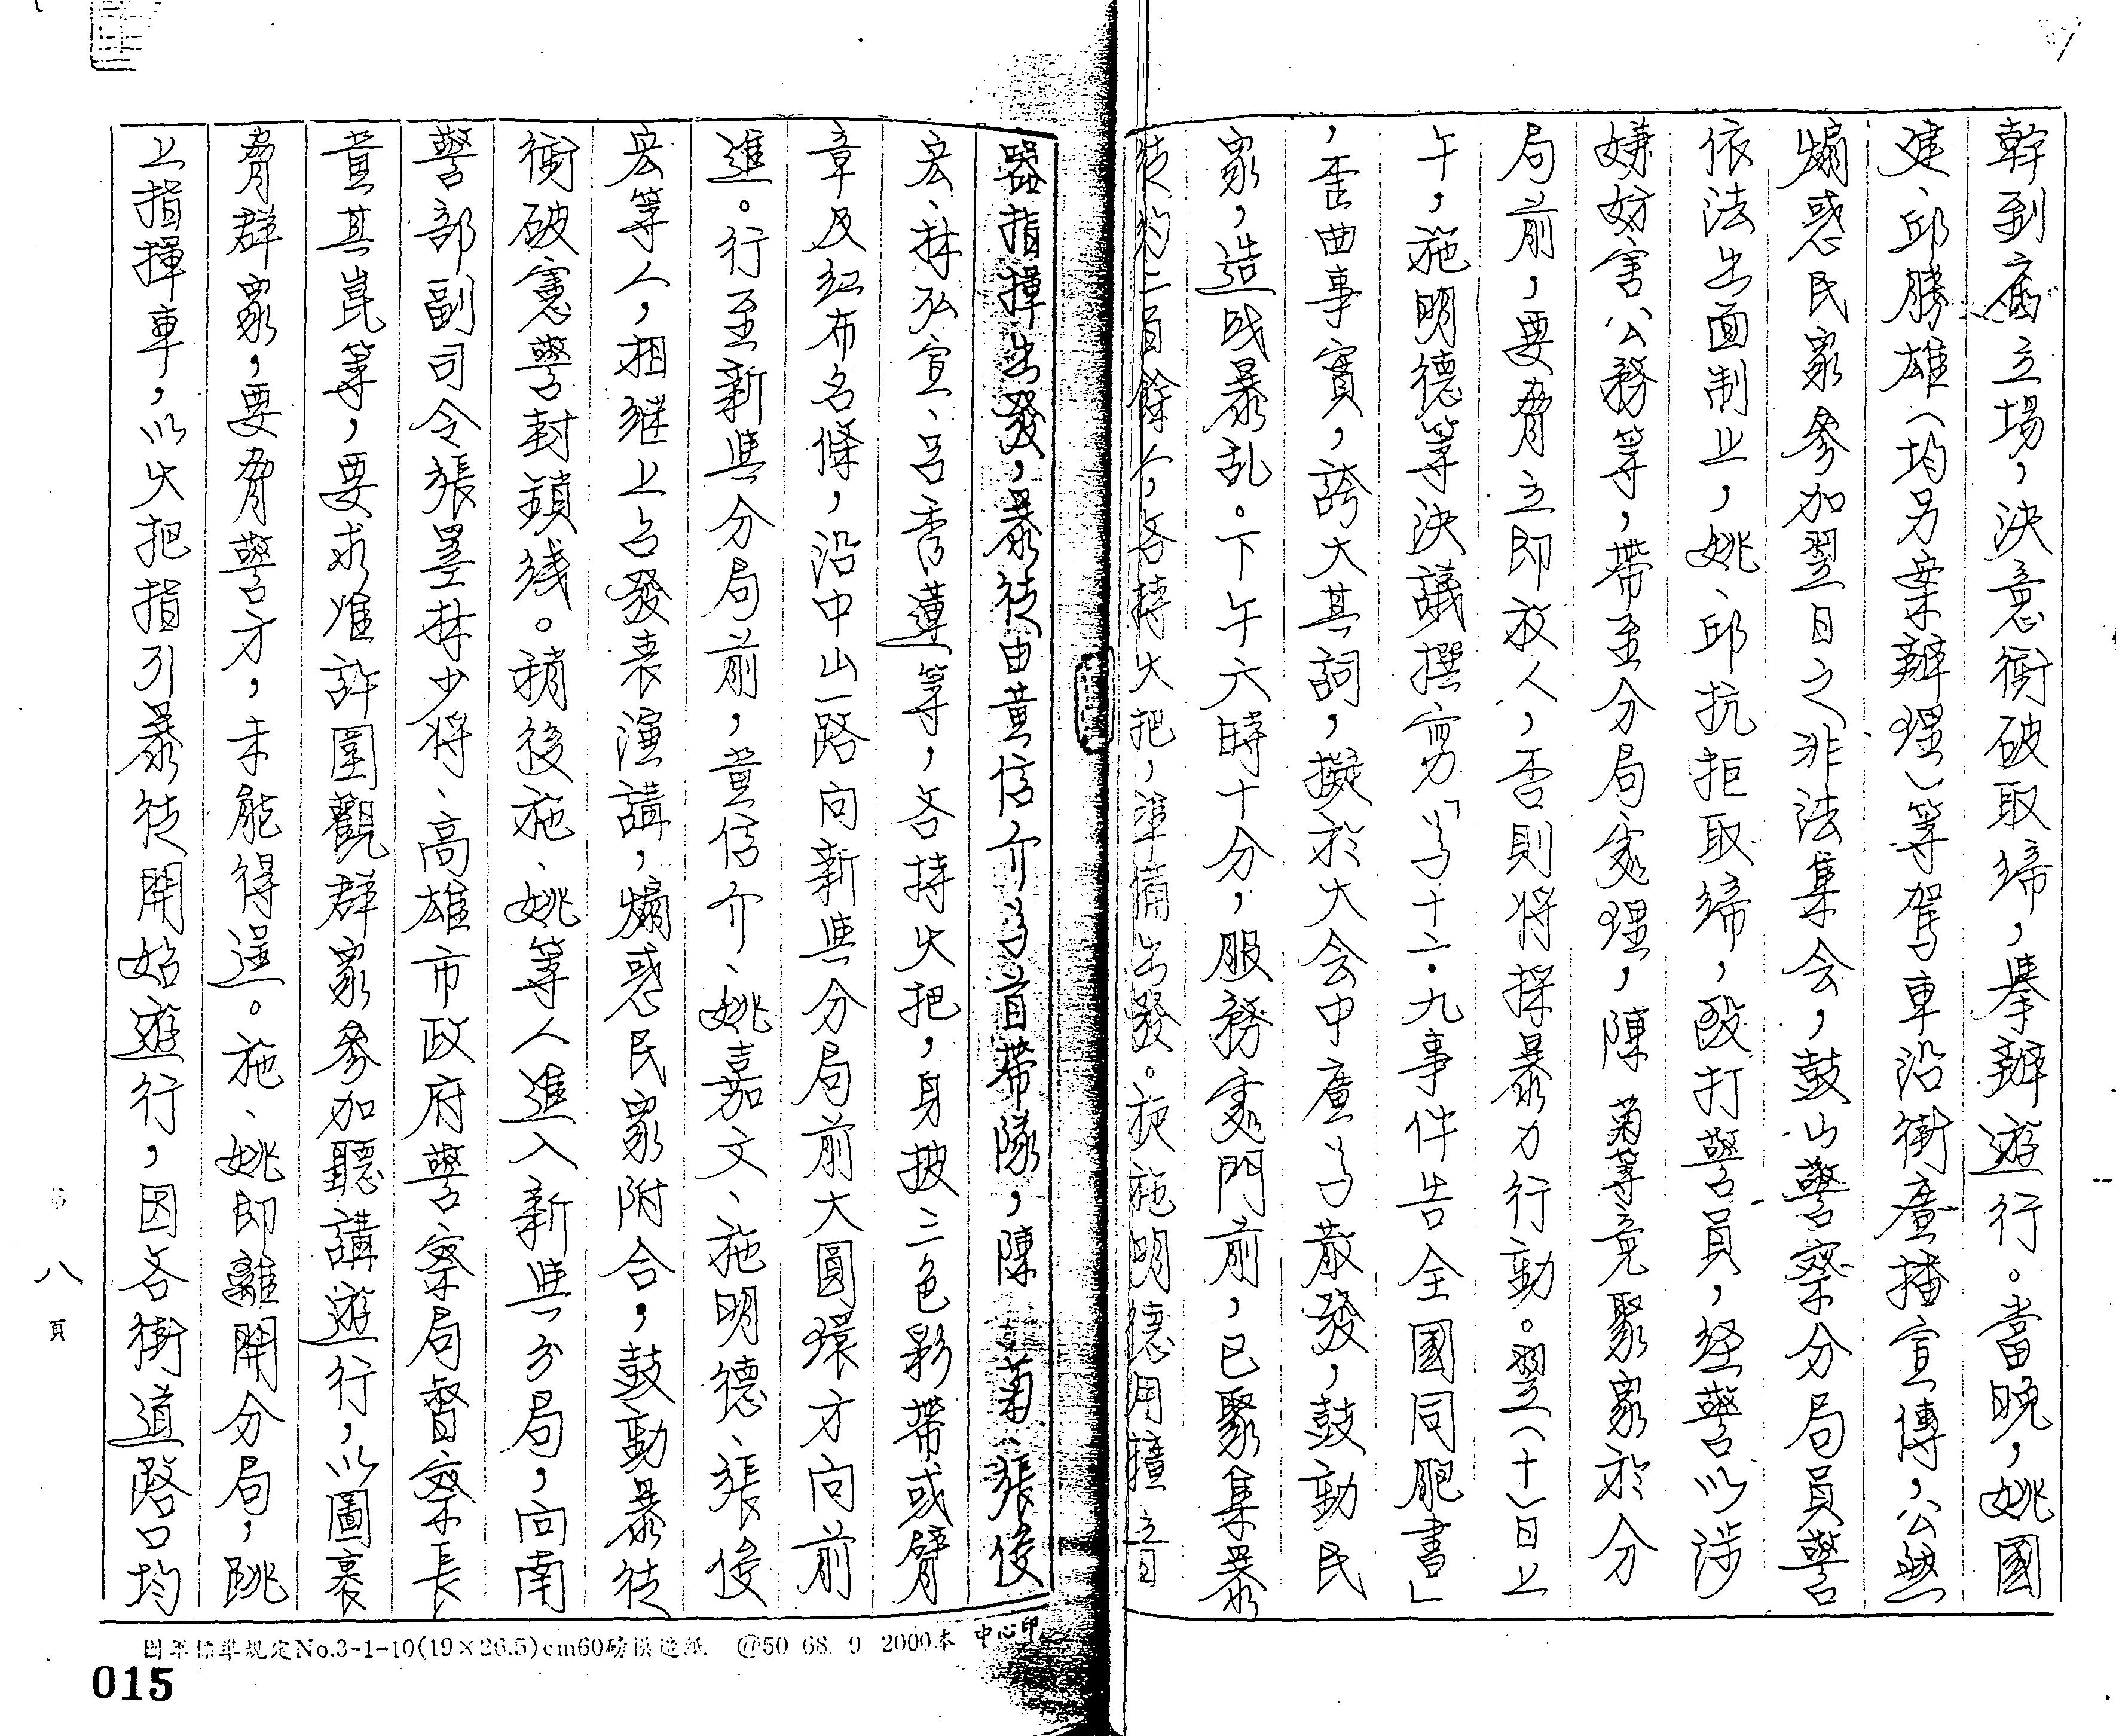 幹到底立場，決意衝破取締，舉辦遊行。當晚，姚國
建、邱勝雄（均另案辦理）等駕車沿街廣播宣傳，公然
煽惑民眾參加翌日之非法集会，鼓山警察分局員警
依法出面制止，姚、邱抗拒取締，毆打警員，經警以涉
嫌妨害公務等，帶至分局處理，陳菊等竟聚眾於分
局前，要脅立即放人，否則将採暴力行動。翌（十）日上
午，施明德等決議撰寫「為十二．九事件告全國同胞書」
，歪曲事實，誇大其詞，擬於大会中廣為散發，鼓動民
眾，造成暴乱。下午六時十分，服務處門前，已聚集暴
徒約二百餘人，各持火把，準備出發。施明德用擴音
器指揮出發，暴徒由黃信介為首帶隊，陳菊、張俊
宏、林弘宣、呂秀蓮等，各持火把，身披三色彩帶或臂
章及紅布名條，沿中山一路向新興分局前大圓環方向前
進。行至新興分局前，黃信介、姚嘉文、施明德、張俊
宏等人，相継上台發表演講，煽惑民眾附合，鼓動暴徒
衝破憲警封鎖线。稍後施、姚等人進入新興分局，向南
警部副司令張墨林少将、高雄市政府警察局督察長
黃其崑等，要求准許圍觀群眾參加聽講遊行，以圖裹
脅群眾，要脅警方，未能得逞。施、姚即離開分局，跳
上指揮車，以火把指引暴徒開始遊行，因各街道路口均
第八頁
No.3-1-10(19×26.5)cm60磅模造紙 @50 68. 9 2000本 中心印
015